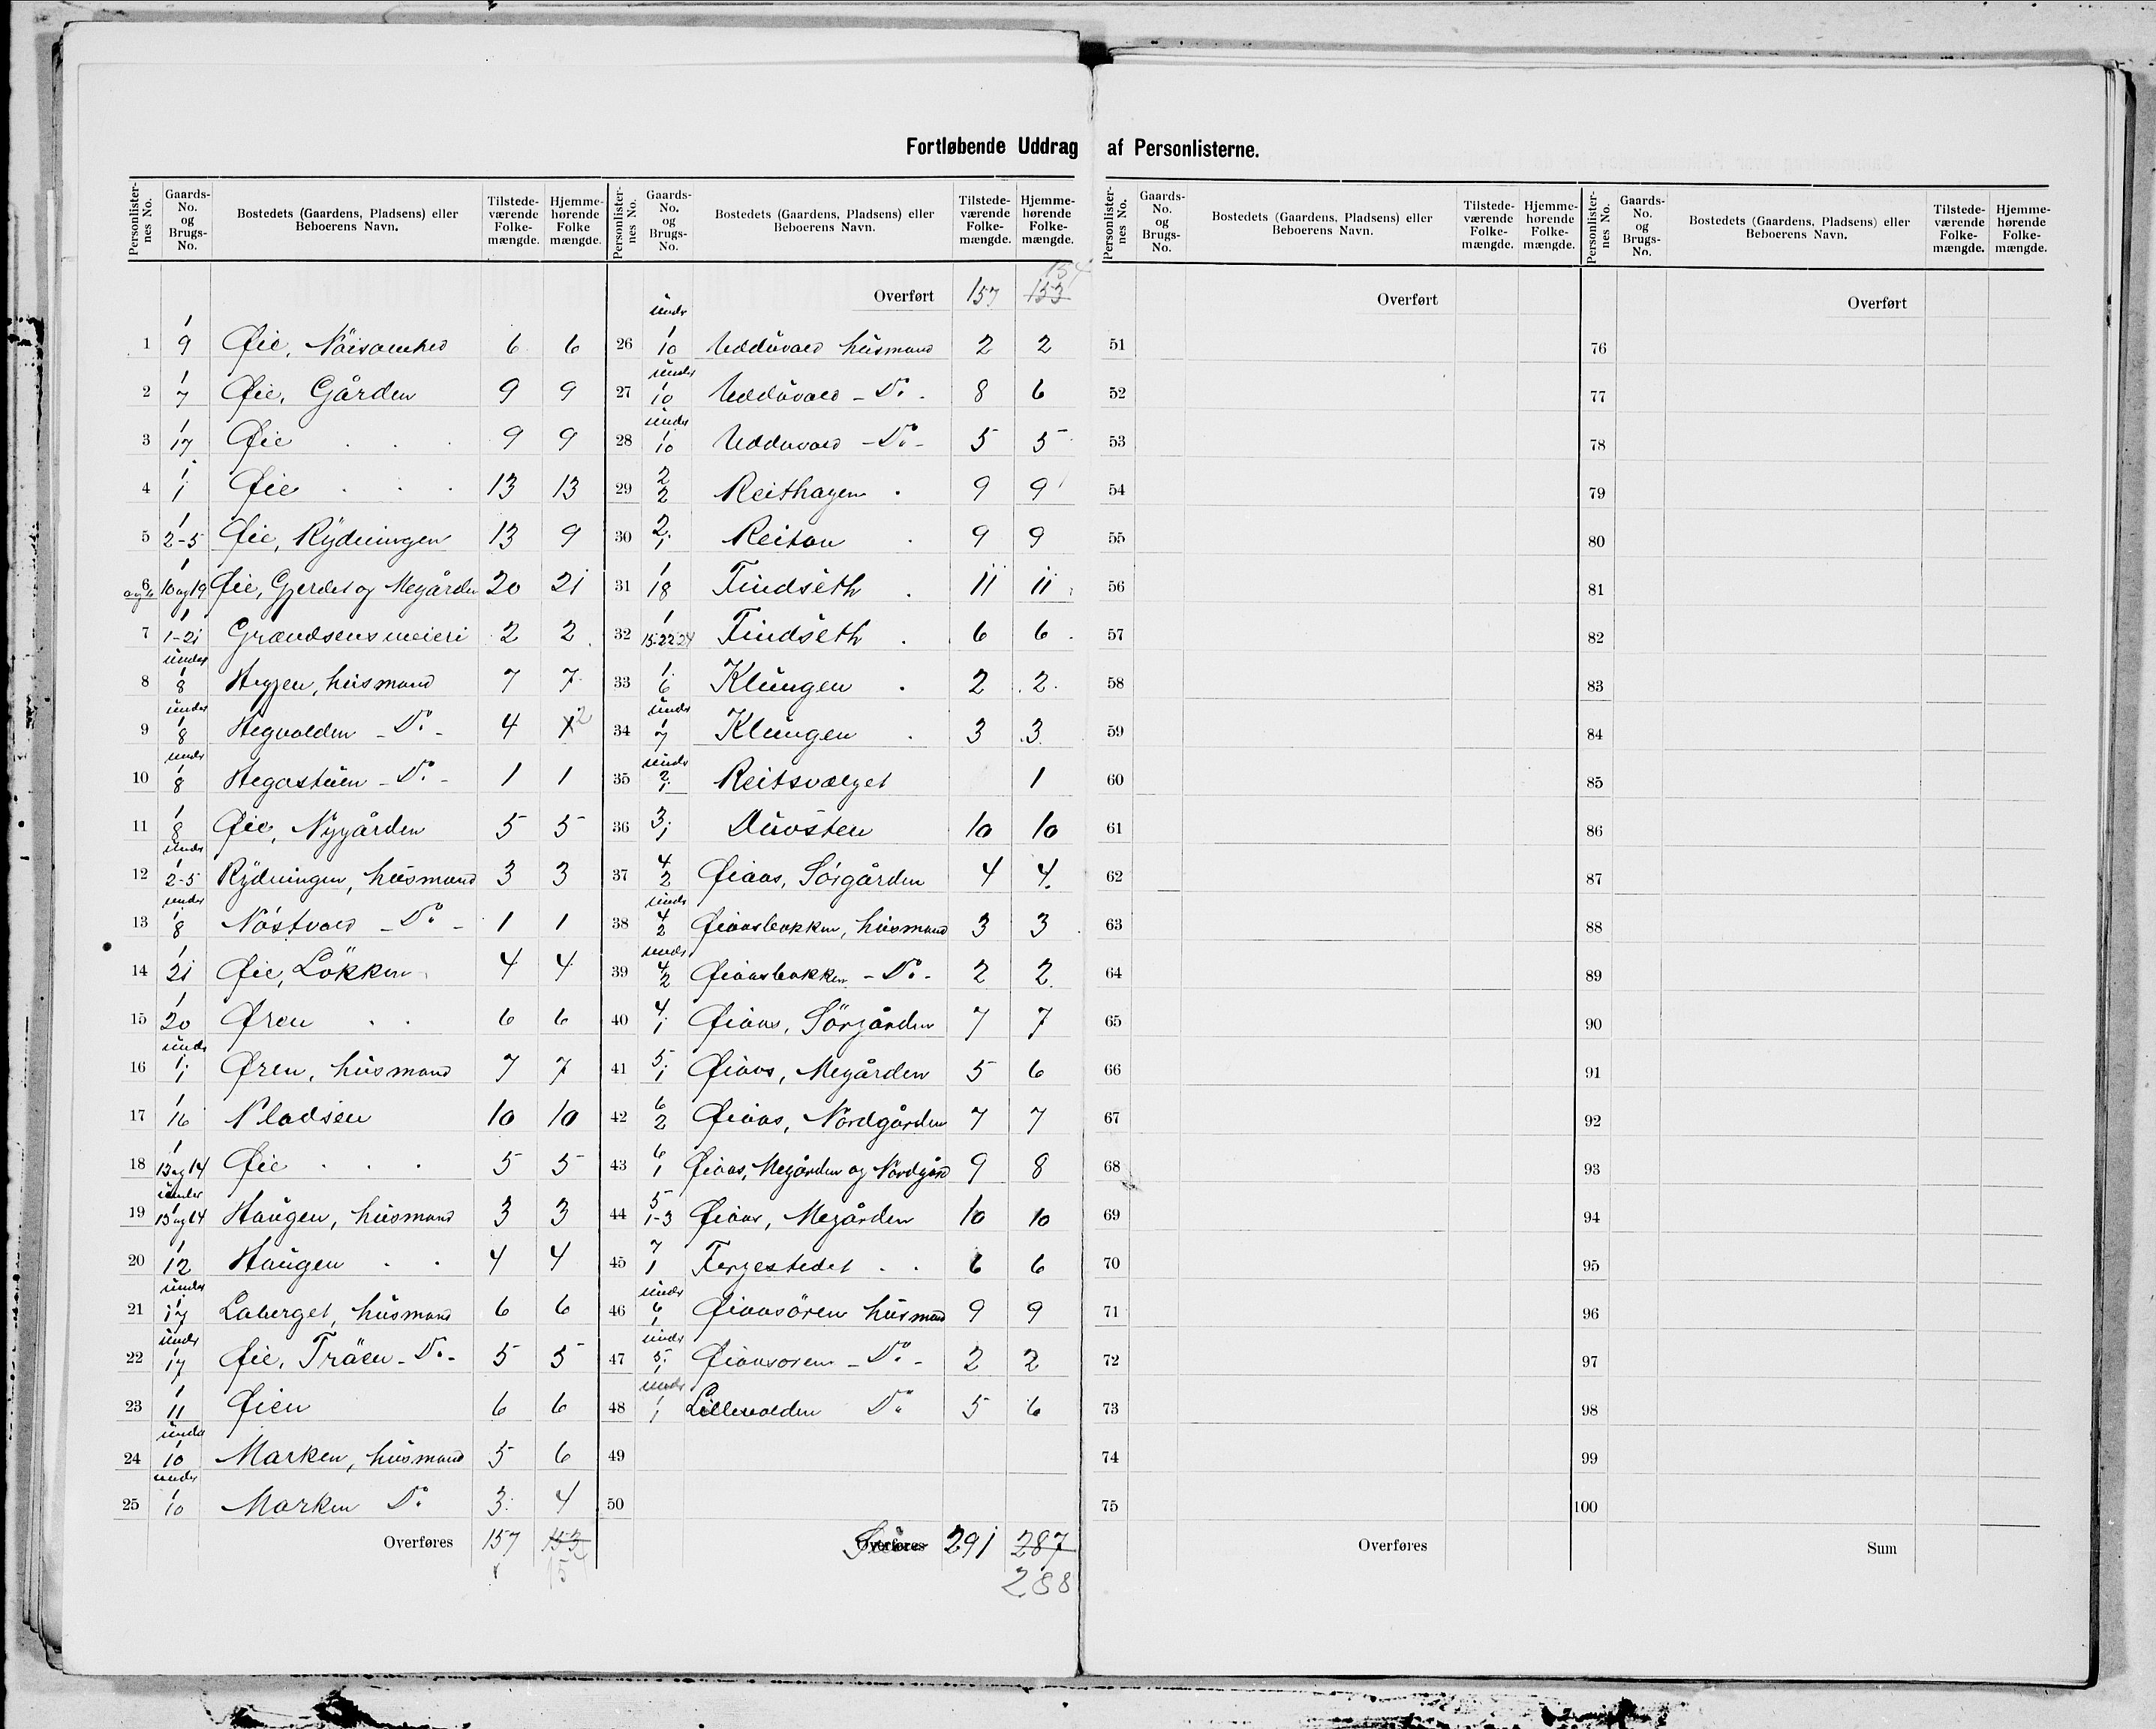 Fortløbende Uddrag af Personlisterne.
Personlister-nes No. | Gaards-No. og Brugs-No. | Bostedets (Gaardens, Pladsens) eller Beboerens Navn. | Tilstede-værende Folke-mængde. | Hjemme-hørende Folke mængde.
1 | 1/9 | Øie, Nöisomhed | 6 | 6
2 | 1/7 | Øie, Gården | 9 | 9
3 | 1/17 | Øie | 9 | 9
4 | 1/1 | Øie | 13 | 13
5 | 1/2-5 | Øie, Rydningen | 13 | 9
6 | 1/10 og 19 | Øie, Gjerdet og Megården | 20 | 21
7 | 1/1-21 | Grændsens meieri | 2 | 2
8 | under 1/8 | Hegzen, husmand | 7 | 7
9 | under 1/8 | Hegvolden - Do - | 4 | 2
10 | under 1/8 | Hegastuen - Do - | 1 | 1
11 | 1/8 | Øie, Nygården | 5 | 5
12 | under 1/2-5 | Rydningen, husmand | 3 | 3
13 | under 1/8 | Nöstvold - Do - | 1 | 1
14 | 1/21 | Øie, Lökken | 4 | 4
15 | 1/20 | Øren | 6 | 6
16 | under 1/1 | Øren, husmand | 7 | 7
17 | 1/16 | Pladsen | 10 | 10
18 | 1/13 og 14 | Øie | 5 | 5
19 | under 1/13 og 14 | Haugen, husmand | 3 | 3
20 | 1/12 | Haugen | 4 | 4
21 | under 1/17 | Laberget, husmand | 6 | 6
22 | under 1/17 | Øie, Tröen - Do - | 5 | 5
23 | 1/11 | Øien | 6 | 6
24 | under 1/10 | Marken, husmand | 5 | 6
25 | under 1/10 | Marken Do | 3 | 4
Overføres | 157 | 153 154
Personlister-nes No. | Gaards-No. og Brugs-No. | Bostedets (Gaardens, Pladsens) eller Beboerens Navn. | Tilstede-værende Folke-mængde. | Hjemme-hørende Folke-mængde.
Overført | 157 | 153 154
26 | under 1/10 | Udduvold husmand | 2 | 2
27 | under 1/10 | Udduvold - Do - | 8 | 6
28 | under 1/10 | Udduvold - Do - | 5 | 5
29 | 2/2 | Reithagen | 9 | 9
30 | 2/1 | Reitan | 9 | 9
31 | 1/18 | Findseth | 11 | 11
32 | 1/15-22-24 | Findseth | 6 | 6
33 | 1/6 | Klungen | 2 | 2
34 | under 1/7 | Klungen | 3 | 3
35 | under 2/1 | Reitsvælget | 1
36 | 3/1 | Duösten | 10 | 10
37 | 4/2 | Øiaas, Sörgården | 4 | 4
38 | under 4/2 | Øiaasbakken, husmand | 3 | 3
39 | under 4/2 | Øiaasbakken - Do - | 2 | 2
40 | 4/1 | Øiaas, Sörgården | 7 | 7
41 | 5/1 | Øiaas, Megården | 5 | 6
42 | 6/2 | Øiaas, Nordgården | 7 | 7
43 | 6/1 | Øiaas, Megården og Nordgård | 9 | 8
44 | 5/1-3 | Øiaas, Megården | 10 | 10
45 | 7/1 | Ferjestedet | 6 | 6
46 | under 6/1 | Øiaasören husmand | 9 | 9
47 | under 5/1 | Øiaasören - Do - | 2 | 2
48 | under 1/1 | Lillevolden Do | 5 | 6
49
50
Overføres | 291 | 287
288
Personlister-nes No. | Gaards-No. og Brugs-No. | Bostedets (Gaardens, Pladsens) eller Beboerens Navn. | Tilstede-værende Folke-mængde. | Hjemme-hørende Folke-mængde.
Overført
51
52
53
54
55
56
57
58
59
60
61
62
63
64
65
66
67
68
69
70
71
72
73
74
75
Overføres
Personlister-nes No. | Gaards-No. og Brugs-No. | Bostedets (Gaardens, Pladsens) eller Beboerens Navn. | Tilstede-værende Folke-mængde. | Hjemme-hørende Folke-mængde.
Overført
76
77
78
79
80
81
82
83
84
85
86
87
88
89
90
91
92
93
94
95
96
97
98
99
100
Sum